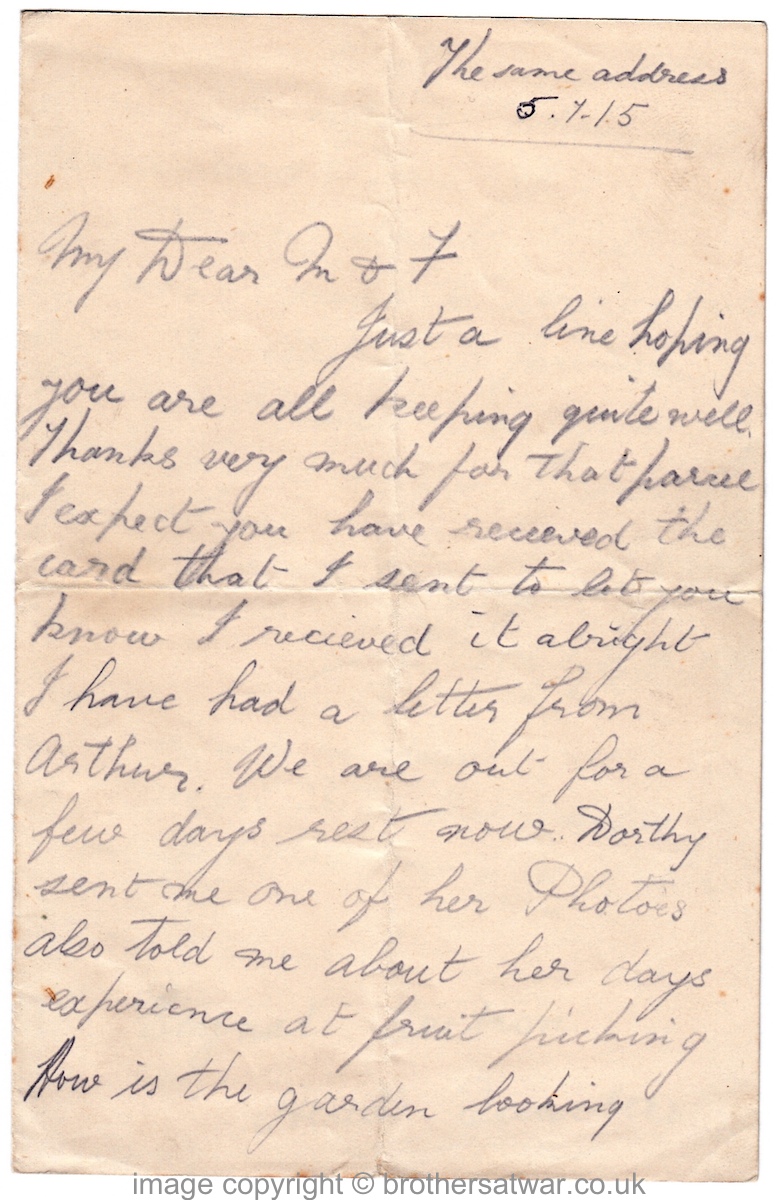 The same address
5.7-15
My Dear M & F
Just a line hoping
you are all keeping quite well.
Thanks very much for that parcel
I expect you have recieved the
card that I sent to let you
know I recieved it alright
I have had a letter from
Arthur. We are out for a
few days rest now. Dorthy
sent me one of her Photoes
also told me about her days
experience at fruit picking
How is the garden looking
image copyright © brothersatwar.co.uk